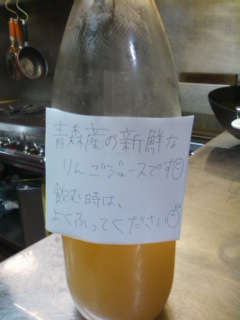 青森産の新鮮な
りんごジュースです
飲む時は、
よくふってください